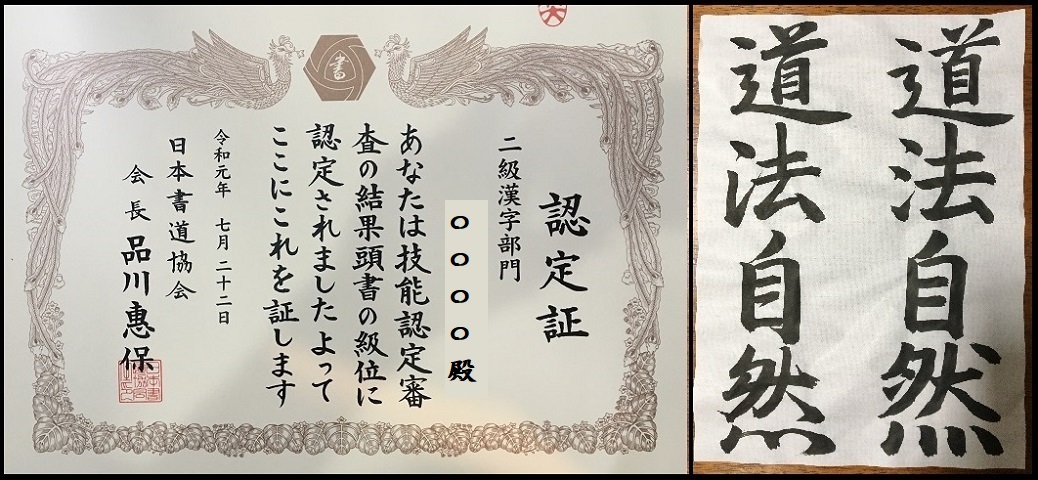 書
認定証
二級漢字部門
〇〇〇〇殿
あなたは技能認定審
査の結果頭書の級位に
認定されましたよって
ここにこれを証します
令和元年 七月二十二日
日本書道協会
会長 品川惠保
道法自然
道法自然